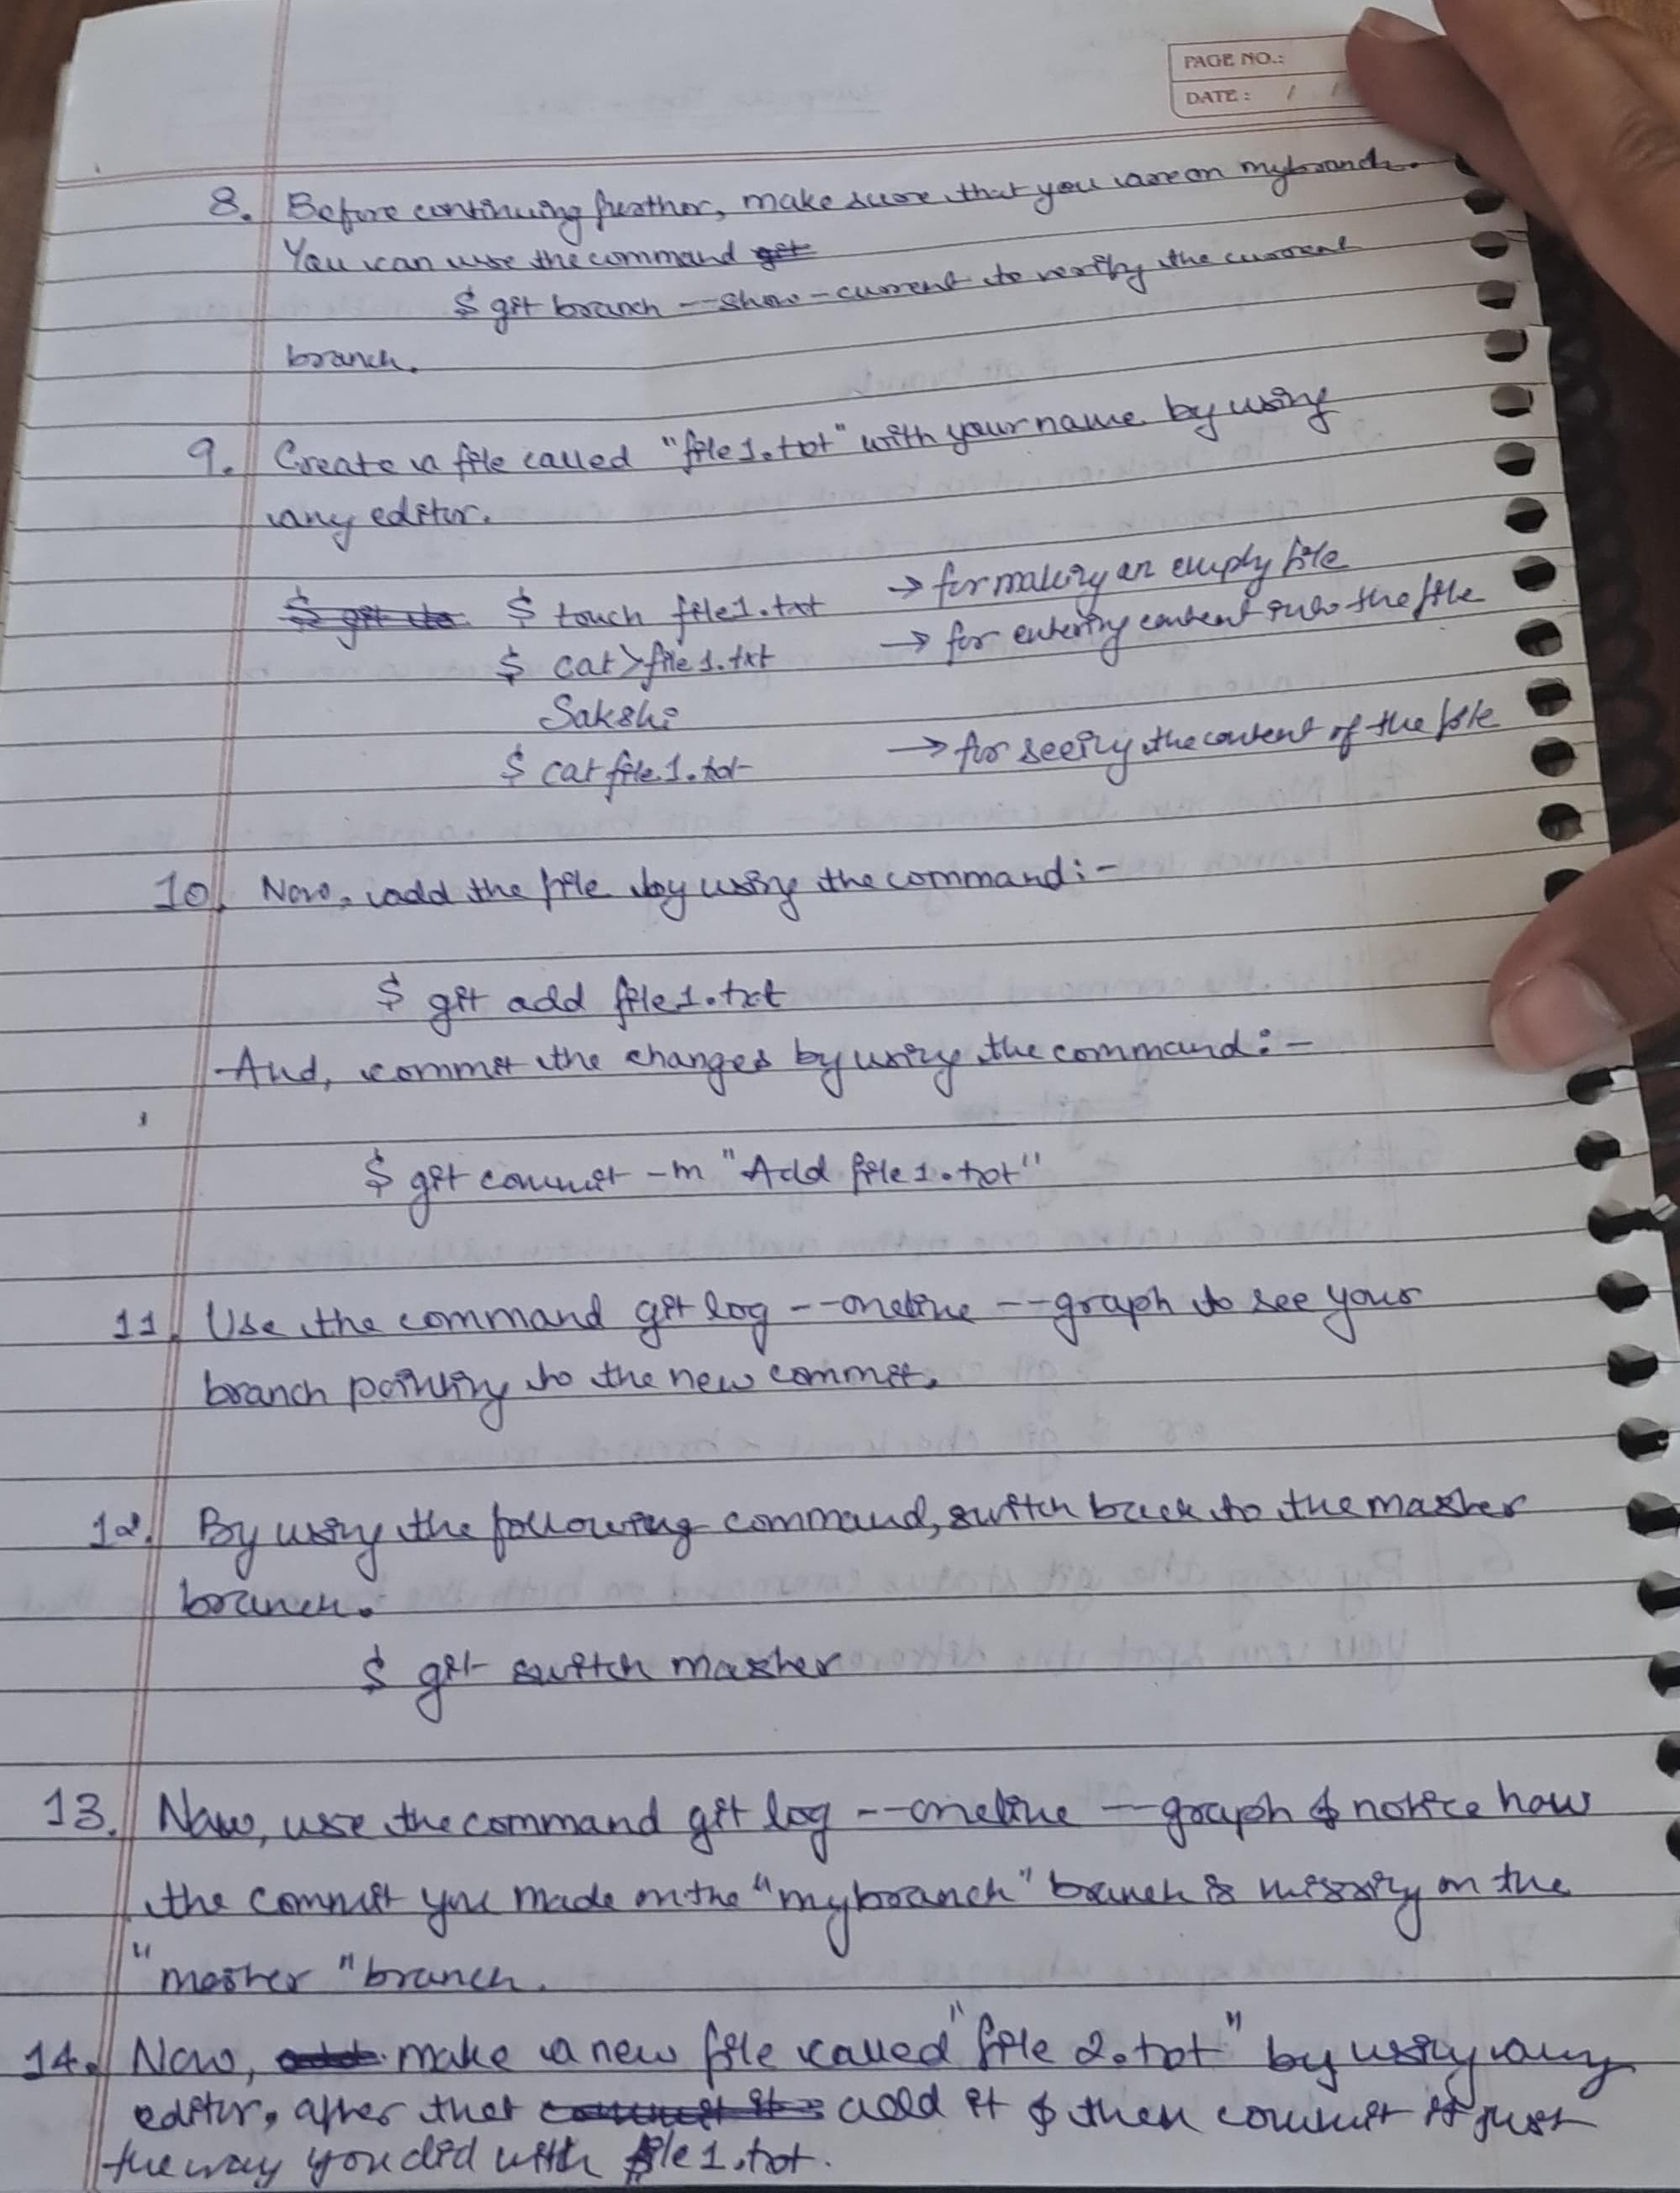 PAGE NO.:
DATE: / /
8. Before continuing further, make sure that you are on mybranch.
You can use the command
$ git branch --show-current to verify the current
branch.
9. Create a file called "file1.txt" with your name by using
any editor.
$ touch file1.txt → for making an empty file
$ cat>file1.txt → for entering content into the file
Sakshi
$ cat file1.txt → for seeing the content of the file
10. Now, add the file by using the command:-
$ git add file1.txt
And, commit the changes by using the command:-
$ git commit -m "Add file1.txt"
11. Use the command git log --oneline --graph to see your
branch pointing to the new commit.
12. By using the following command, switch back to the master
branch.
$ git switch master
13. Now, use the command git log --oneline --graph & notice how
the commit you made on the "mybranch" branch is missing on the
"master" branch.
14. Now, make a new file called "file 2.txt" by using any
editor, after that add it & then commit it just
the way you did with file1.txt.